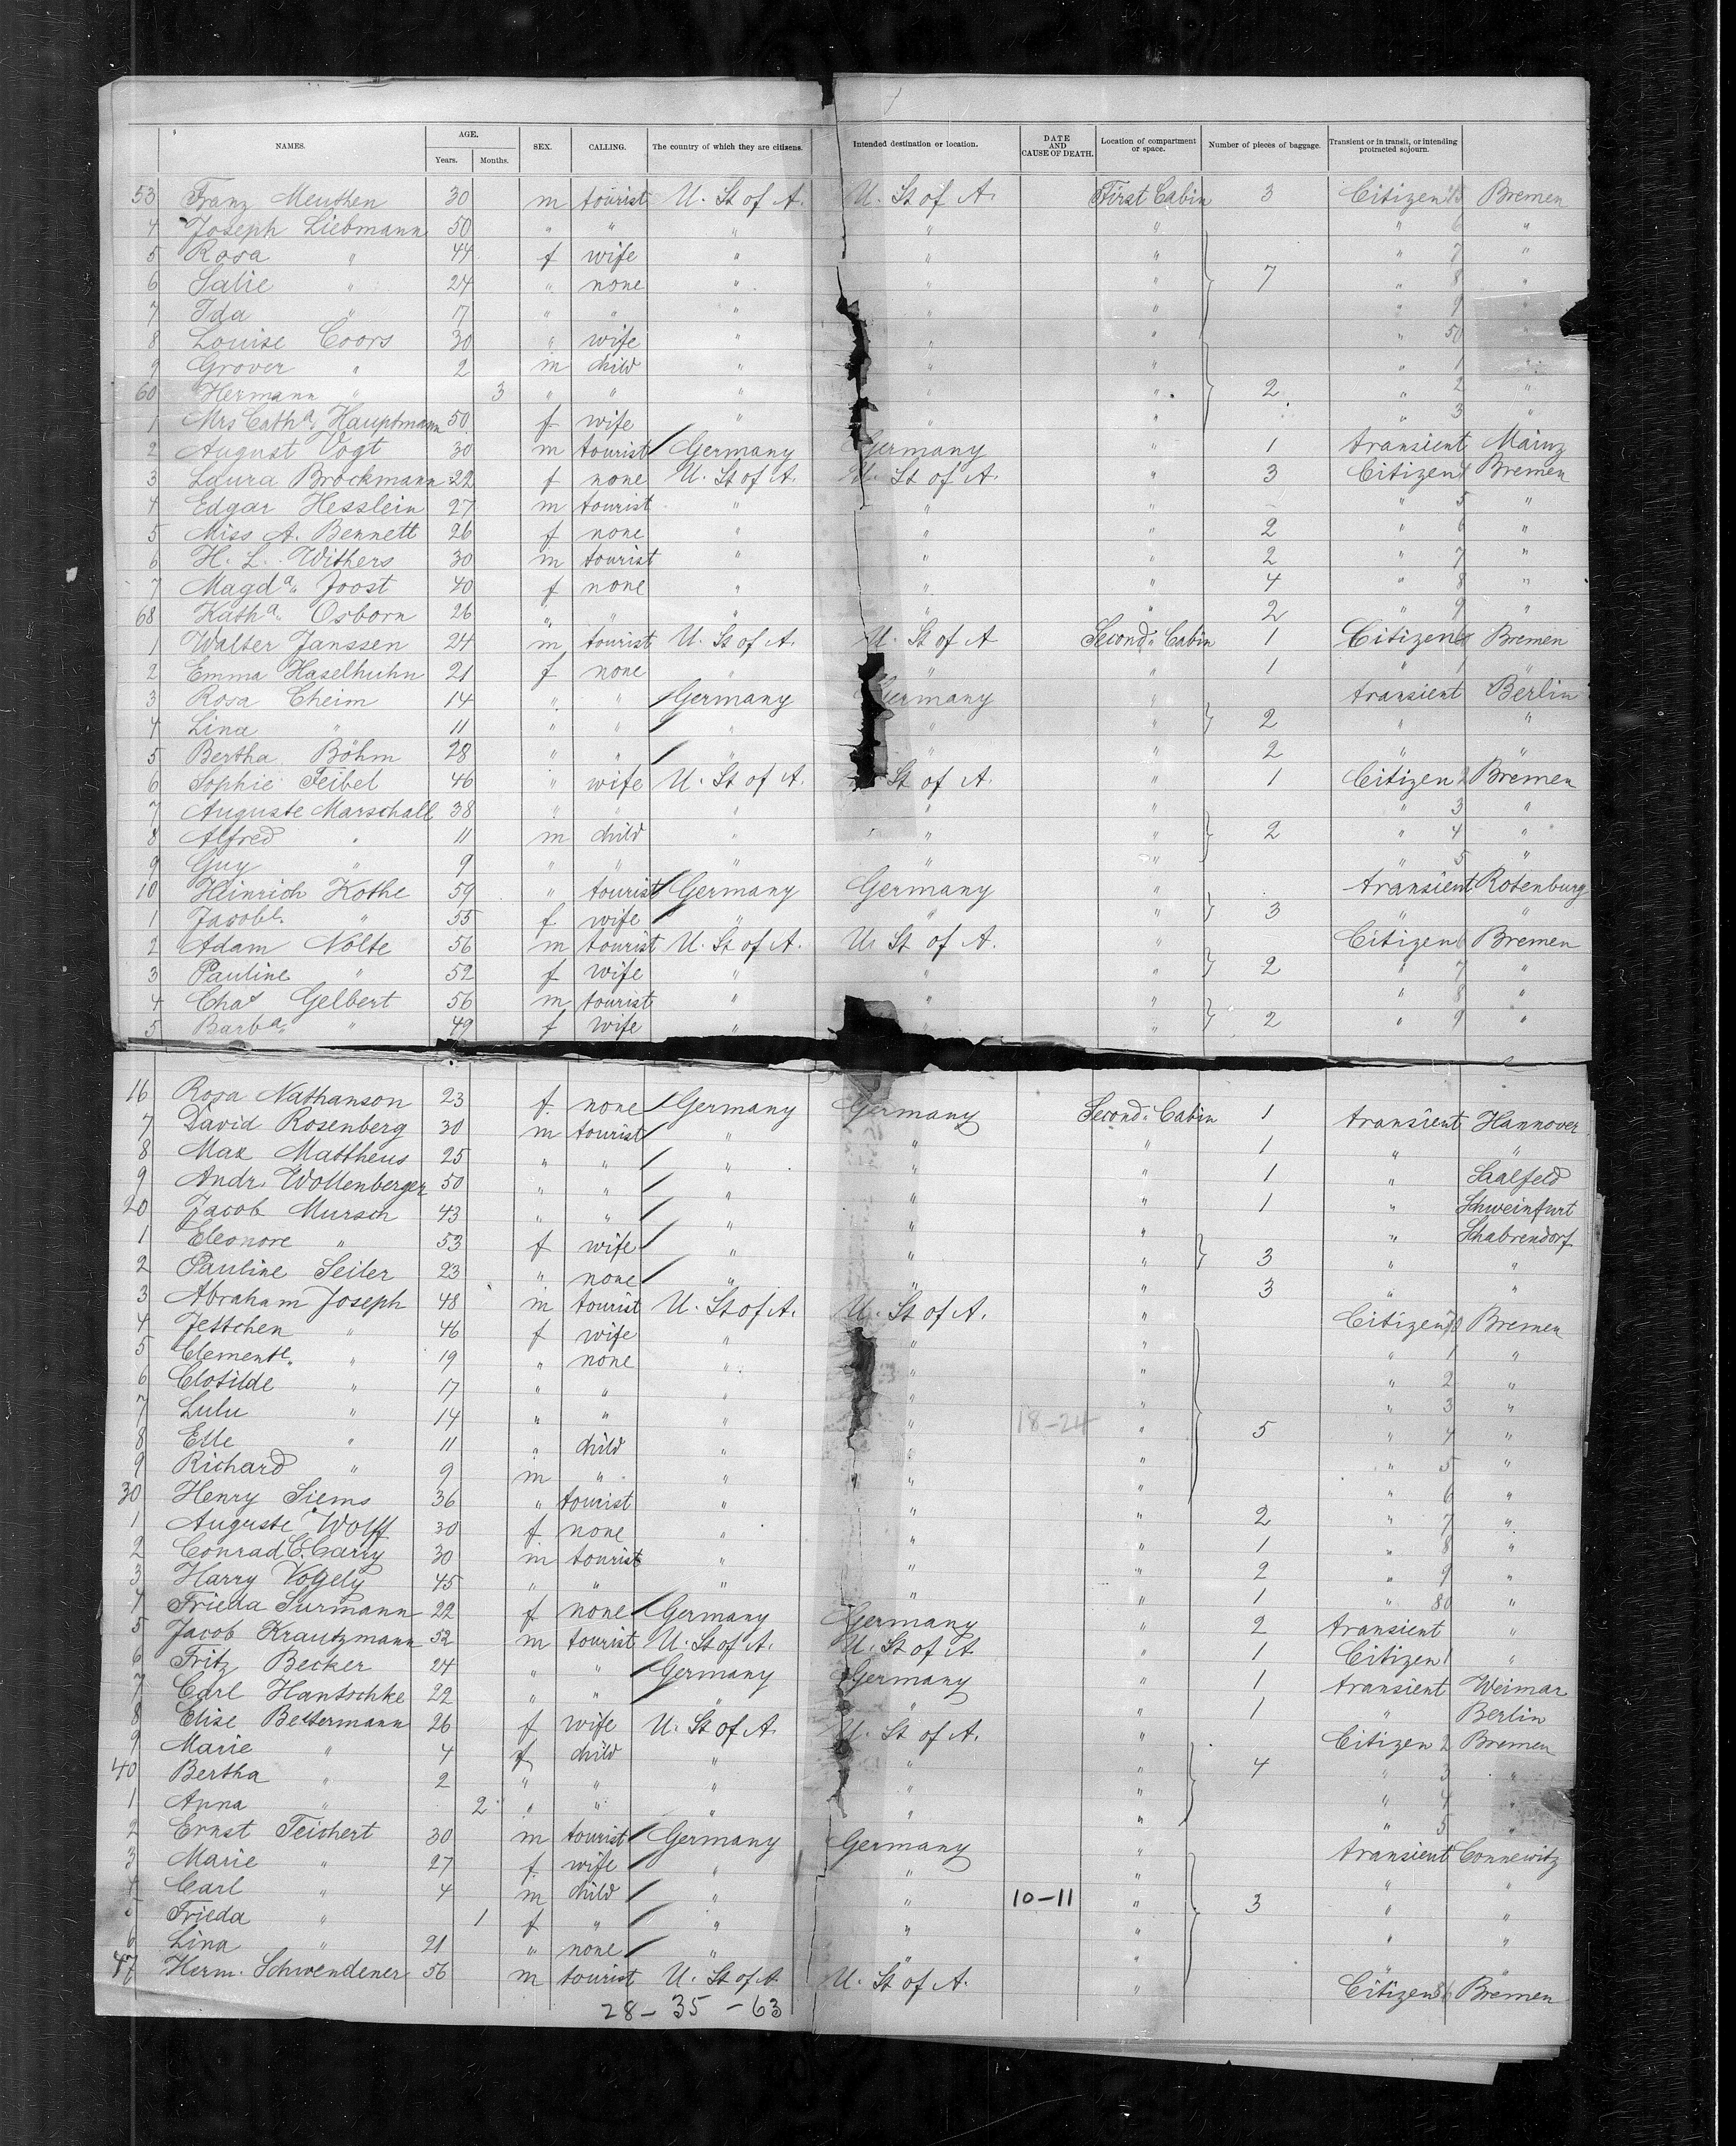 NAMES. AGE. Years. Months. SEX. CALLING. The country of which they are citizens. Intended destination or location. DATE AND CAUSE OF DEATH. Location of compartment or space. Number of pieces of baggage. Transient or in transit, or intending protracted sojourn.
53 Franz Meuthen 30 m tourist U. St of A. U. St of A. First Cabin 3 Citizen Bremen
4 Joseph Liebmann 50 " " " " " " 6 "
5 Rosa " 44 f wife " " " " 7 "
6 Salie " 24 " none " " " 7 " 8 "
7 Ida " 17 " " " " " " 9 "
8 Louise Coors 30 " wife " " " " 50 "
9 Grover " 2 m child " " " " 1 "
60 Hermann " 3 " " " " " 2 " 2 "
1 Mrs Cath.a Hauptmann 50 f wife " " " " 3 "
2 August Vogt 30 m tourist / Germany Germany " 1 transient Mainz
3 Laura Brockmann 22 f none U. St of A. U. St of A. " 3 Citizen Bremen
4 Edgar Hesslein 27 m tourist " " " " 5 "
5 Miss A. Bennett 26 f none " " " 2 " 6 "
6 H. L. Withers 30 m tourist " " " 2 " 7 "
7 Magd.a Joost 40 f none " " " 4 " 8 "
68 Kath.a Osborn 26 " " " " " 2 " 9 "
1 Walter Janssen 24 m tourist U. St of A. U. St of A Second Cabin 1 Citizen Bremen
2 Emma Haselhuhn 21 f none " " " 1 " 1 "
3 Rosa Cheim 14 " " / Germany Germany " transient Berlin
4 Lina " 11 " " / " " " 2 " "
5 Bertha Böhm 28 " " / " " " 2 " "
6 Sophie Feibel 46 " wife U. St of A. U. St of A. " 1 Citizen 2 Bremen
7 Auguste Marschall 38 " " " " " " 3 "
8 Alfred " 11 m child " " " 2 " 4 "
9 Guy " 9 " " " " " " 5 "
10 Heinrich Kothe 59 " tourist / Germany Germany " transient Rotenburg
1 Jacob.e " 55 f wife / " " " 3 " "
2 Adam Nolte 56 m tourist U. St of A. U. St of A. " Citizen 6 Bremen
3 Pauline " 52 f wife " " " 2 " 7 "
4 Chas Gelbert 56 m tourist " " " " 8 "
5 Barb.a " 49 f wife " " " 2 " 9 "
16 Rosa Nathanson 23 f none / Germany Germany Second Cabin 1 transient Hannover
7 David Rosenberg 30 m tourist / " " " 1 " "
8 Max Mattheus 25 " " / " " " 1 " Saalfeld
9 Andr. Wollenberger 50 " " / " " " 1 " Schweinfurt
20 Jacob Mursch 43 " " / " " " " Schabrendorf
1 Eleonore " 53 f wife / " " " 3 " "
2 Pauline Seiler 23 " none / " " " 3 " "
3 Abraham Joseph 48 m tourist U. St of A. U. St of A. " Citizen 70 Bremen
4 Jettchen " 46 f wife " " " " 1 "
5 Clement.e " 19 " none " " " " 2 "
6 Clotilde " 17 " " " " " " 3 "
7 Lulu " 14 " " " " 18-24 " 5 " 4 "
8 Elle " 11 " child " " " " 5 "
9 Richard " 9 m " " " " " 6 "
30 Henry Siems 36 " tourist " " " 2 " 7 "
1 Auguste Wolff 30 f none " " " 1 " 8 "
2 Conrad C. Carry 30 m tourist " " " 2 " 9 "
3 Harry Vogely 45 " " " " " 1 " 80 "
4 Frieda Surmann 22 f none / Germany Germany " 2 transient "
5 Jacob Krautzmann 52 m tourist U. St of A. U. St of A " 1 Citizen 1 "
6 Fritz Becker 24 " " / Germany Germany " 1 transient Weimar
7 Carl Hantschke 22 " " / " " " 1 " Berlin
8 Elise Beltermann 26 f wife U. St of A. U. St of A. " Citizen 2 Bremen
9 Marie " 4 f child " " " 4 " 3 "
40 Bertha " 2 " " " " " " 4 "
1 Anna " 2 " " " " " " 5 "
2 Ernst Teichert 30 m tourist / Germany Germany transient Connewitz
3 Marie " 27 f wife / " " " " "
4 Carl " 4 m child / " " 10-11 " 3 " "
5 Frieda " 1 f " / " " " " "
6 Lina " 21 " none / " " " " "
47 Herm. Schwendener 56 m tourist U. St of A U. St of A. " Citizen 86 Bremen
28-35-63